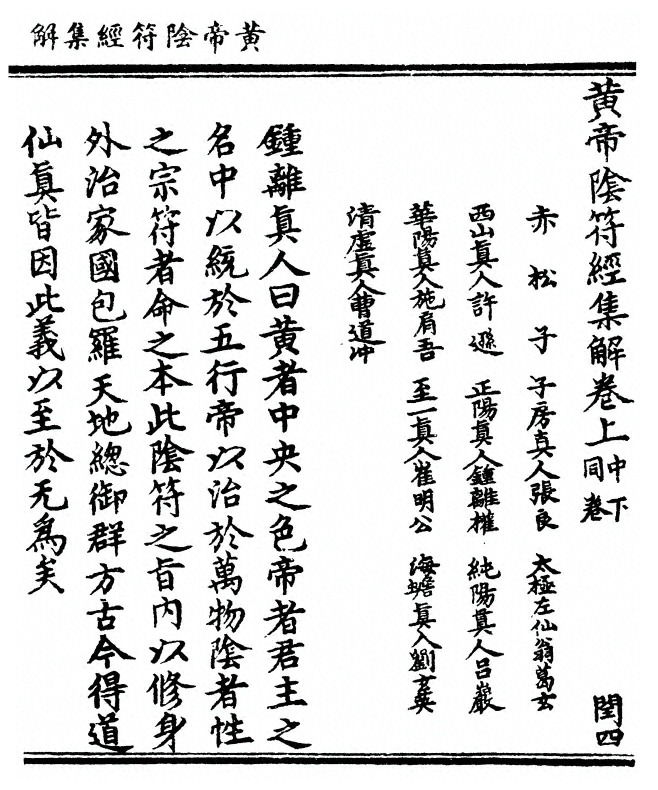 黃帝陰符經集解
黃帝陰符經集解卷上中下同卷 閏四
赤松子 子房真人張良 太極左仙翁葛玄
西山眞人許遜 正陽眞人鍾離權 純陽眞人呂巖
華陽眞人施肩吾 至一眞人崔明公 海蟾眞人劉玄英
清虛眞人曹道冲
鍾離眞人曰黃者中央之色帝者君主之
名中以統於五行帝以治於萬物陰者性
之宗符者命之本此陰符之旨內以修身
外治家國包羅天地總御群方古今得道
仙眞皆因此義以至於无為矣